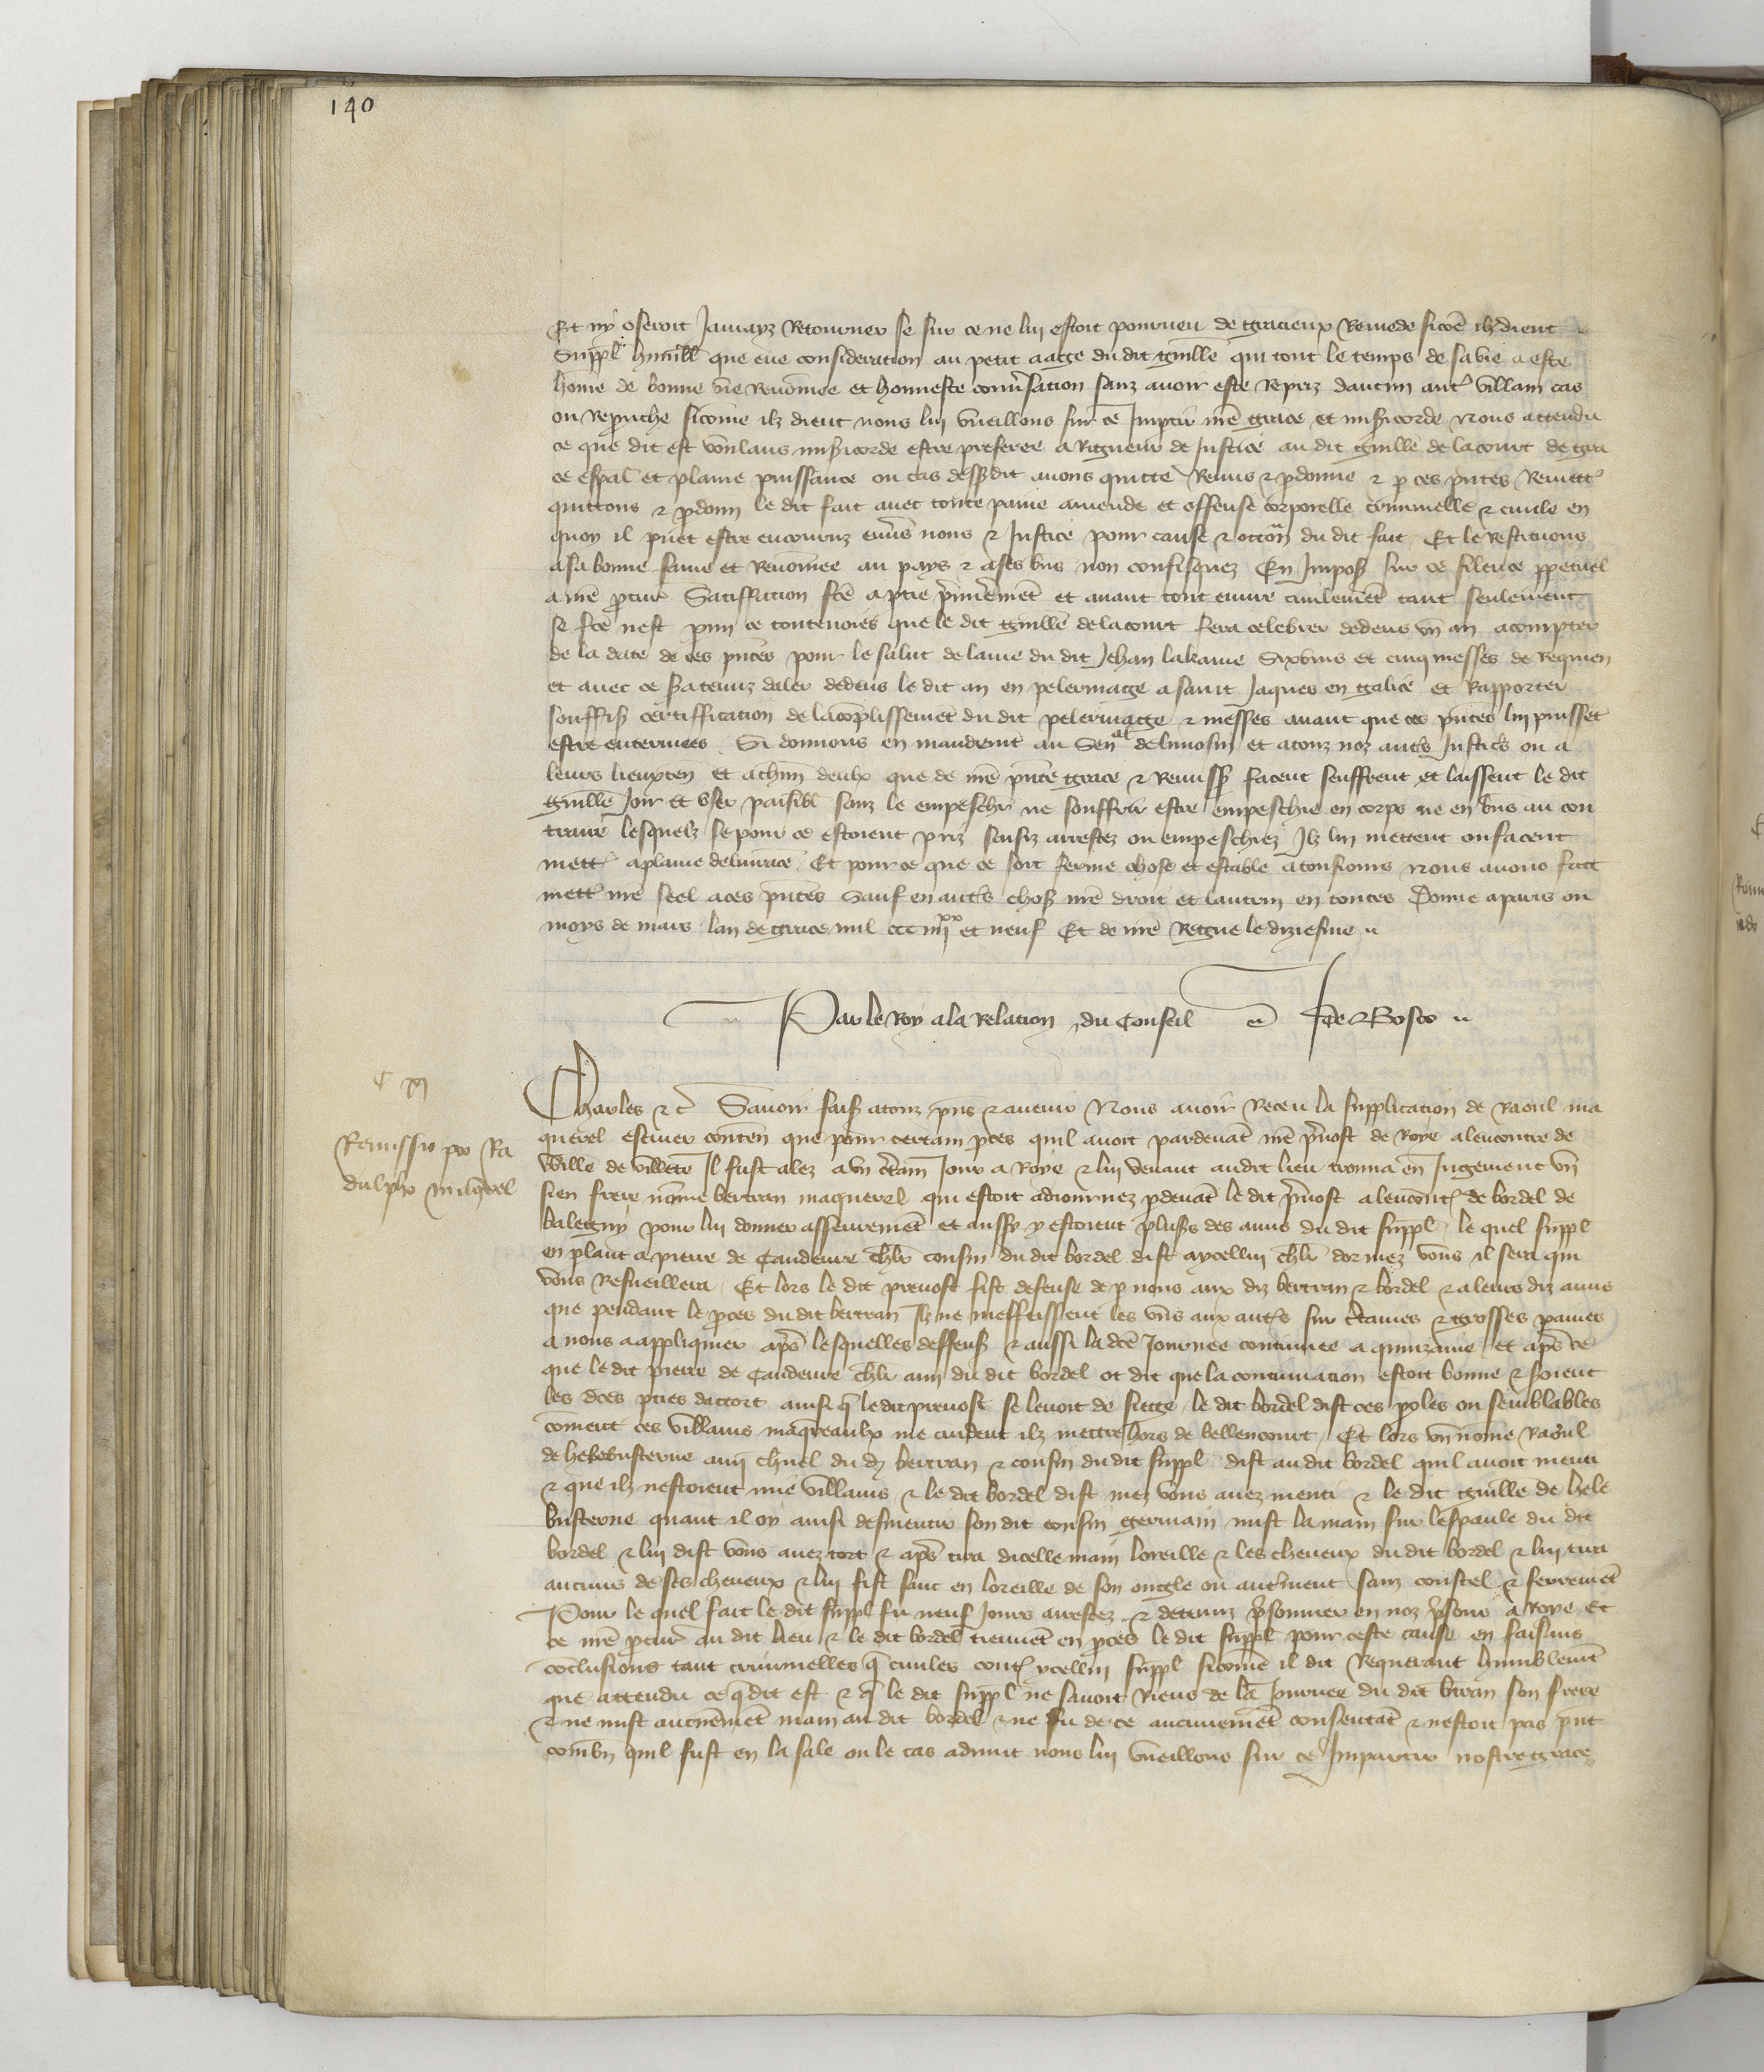 140
Et ny oseroit Jamayz Retourner se sur ce ne lui estoit pourveu de gracieux Remede sicōe ilz dient
Suppl humbl que eue consideration au petit aage du dit Guille qui tout le temps de sa vie a este
home de bonne vie Renōmee et honneste convsation sanz avoir este Repriz daucun autr villain cas
ou Reprouche sicōme ilz dient nous lui vueillons sur ce Impartir nrē grace et misicorde Nous attendu
ce que dit est voulans misicorde estre preferee a Rigueur de Justice au dit Guille de lacourt de gra
ce espal et plaine puissance ou cas dessusdit avons quitte Remis & pdonne & p ces pntes Remett
quittons & pdonn le dit fait avec toute paine amende et offense corporelle criminelle & civile en
quoy il puet estre encouruz envs nous & Justice pour cause & occon du dit fait Et le Restituons
a sa bonne fame et Renōmee au pays & a ses bns non confisquez En Impos sur ce silence ppetuel
a nrē pcur Satisffacion fce a ptie primierement et avant tout euvre civilement tant seulement
se fce nest pmi ce toutevoies que le dit Guille de lacourt fera celebrer dedens un an acompter
de la date de ces pntes pour le salut de lame du dit Jehan lakame Sixvins et cinq messes de Requien
et avec ce sa tenuz daler dedens le dit an en pelerinage a saint Jaques en galice et Rapporter
souffis certifficacion de lacōplissemēt du dit pelerinage & messes avant que ces pntes lui puissēt
estre enterinees Si donnons en mandemt au Senal de limosin et a touz noz autrs Justics ou a
leurs lieuxten et a chun deulx que de nrē pnte grace & Remiss facent seuffrent et laissent le dit
Guille Joir et user paisibl sanz le empeschr ne souffrir estre empeschie en corps ne en bns au con
traire lesquelz se pour ce estoient priz saisiz arrestez ou empeschiez Ilz lui mettent ou facent
mettr a plaine delivrāce Et pour ce que ce soit ferme chose et estable a tousiours nous avons fait
mettr nrē seel a ces pntes Sauf en autrs chos nrē droit et lautrui en toutes Donne a paris ou
moys de mars lan de grace mil ccc iiiixx et neuf Et de nrē Regne le diziesme
Par le Roy a la Relacion du Conseil J de Bosco
Remissio pro Ra
dulpho maqrel
Charles &c Savoir fais a touz pns & avenir Nous avoir Receu la supplicacion de Raoul ma
querel escuier conten que pour certain pces quil avoit pardevāt nrē prvost de Roye alencontre de
Wille de villete Il fust alez a un ctain Jour a Roye & lui venant au dit lieu trouva en Jugement un
sien frere nōme bertran maquerel qui estoit adiournez pdevāt le dit prvost alencontr de bordel de
balegny pour lui donner asseuremēt et aussy y estoient plusrs des amis du dit suppl le quel suppl
en plant a pierre de Candeure chlr cousin du dit bordel dist a ycellui chlr dormez vous il sera qui
vous Resveillera Et lors le dit prevost fist defense de p nous aux diz bertran & bordel & a leurs diz amis
que pendant le pces du dit bertran Ilz ne meffeissent les uns aux autrs sur ctaines & grosses paines
a nous a appliquier aps lesquelles deffens & aussi la dce Journee continuee a quinzaine et aps ce
que le dit pierre de Candeure chlr ami du dit bordel ot dit que la continuation estoit bonne & soient
les dces pties daccort ainsi q le dit prevost se levoit de siege le dit bordel dist ces poles ou semblables
cōment ces villains maqreaulx me cuident ilz mettre hors de bellencourt Et lors un nōme Raoul
de hebebusterne ami chnel du dit bertran & cousin du dit suppl dist au dit bordel quil avoit menti
& que ilz nestoient mie villains & le dit bordel dist mez vous avez menti & le dit Guille de hele
busterne quant il oy ainsi desmentir son dit cousin germain mist la main sur lespaule du dit
bordel & lui dist vous avez tort & aps tira dicelle main loreille & les cheveux du dit bordel & lui tira
aucuns de ses cheveux & lui fist sanc en loreille de son ongle ou autrment sanz coustel & ferremēt
Pour le quel fait le dit suppl fu neuf Jours arrestez & detenuz prsonnier en noz prsons a Roye Et
ce nrē pcur au dit lieu & le dit bordel tiennēt en pces le dit suppl pour ceste cause en faisans
cōclusions tant criminelles q civiles contr ycellui suppl sicōme il dit Requerant humblemt
que attendu ce q dit est & q le dit suppl ne savoit Riens de la Journee du dit btran son frere
& ne mist aucunemēt main au dit bordel & ne fu de ce aucunemēt consentāt & nestoit pas pnt
combn quil fust en la sale ou le cas advint nous lui vueillons sur ce Impartir nostre grace